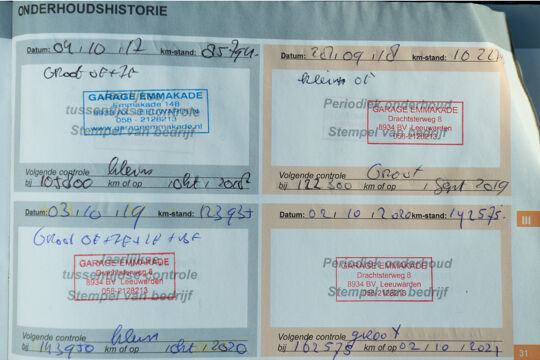 ONDERHOUDSHISTORIE
Datum: 04, 10, 17 km-stand: 85794
Groot OF+IF
tussentijdse controle
Stempel van bedrijf
GARAGE EMMAKADE
Emmakade 148
058 - 2128213
www.garageemmakade.nl
Volgende controle klein
bij km of op okt,
Datum: 09, 18 km-stand:
kleine OF
Periodiek onderhoud
Stempel van bedrijf
GARAGE EMMAKADE
Drachtsterweg 8
8934 BV Leeuwarden
058-2128213
Volgende controle Groot
bij 122300 km of op Sept 2019
Datum: 03, 10, 19 km-stand: 123937
Groot OF+IF+LF+BF
Jaarlijkse
tussentijdse controle
Stempel van bedrijf
GARAGE EMMAKADE
Drachtsterweg 8
8934 BV Leeuwarden
058-2128213
Volgende controle klein
bij 143950 km of op okt, 2020
Datum: 02, 10, 2020 km-stand: 142575
Periodiek onderhoud
Stempel van bedrijf
GARAGE EMMAKADE
Drachtsterweg 8
8934 BV Leeuwarden
058-2128213
Volgende controle groot
bij 162575 km of op 02, 10, 2021
III
31